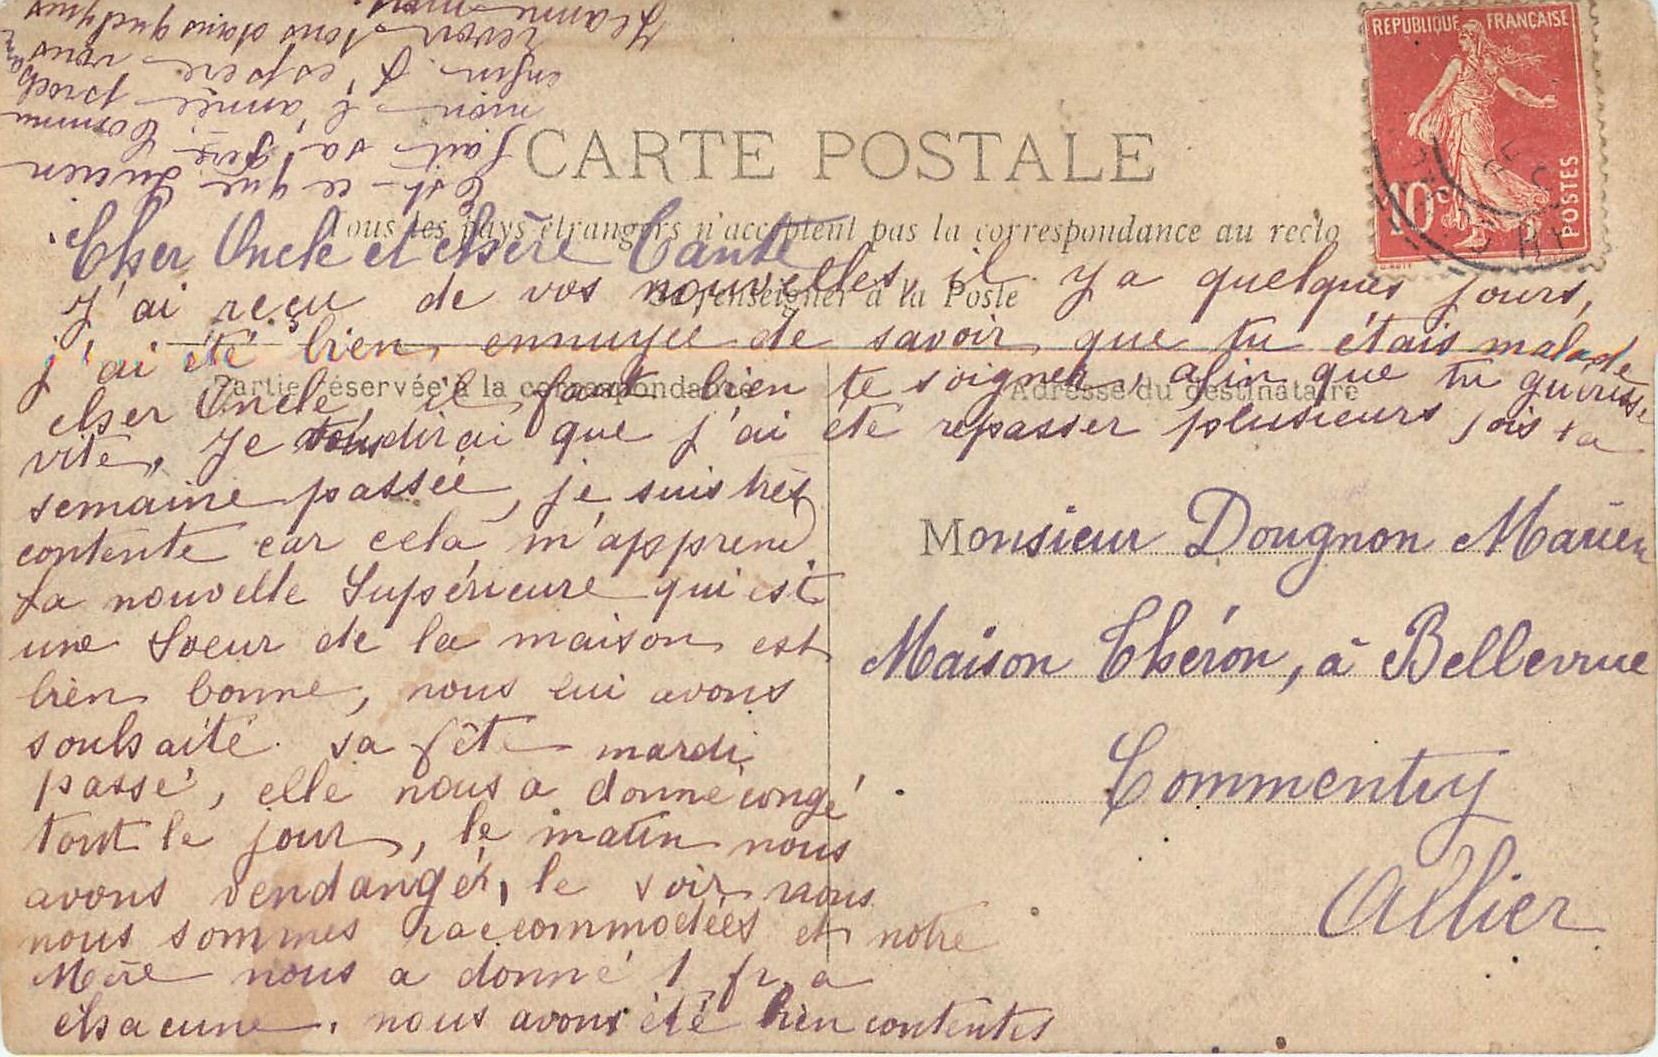 REPUBLIQUE FRANÇAISE
10c
POSTES
CARTE POSTALE
Tous les pays étrangers n'acceptent pas la correspondance au recto
Se renseigner à la Poste
Partie réservée à la correspondance
Adresse du destinataire
Cher Oncle et chère Tante
J'ai reçu de vos nouvelles, il y a quelques jours,
j'ai été bien ennuyée de savoir que tu étais malade
cher Oncle, il faut bien te soigner, afin que tu guérisse
vite, Je dirai que j'ai été repasser plusieurs fois la
semaine passée, je suis très
contente car cela m'apprend
la nouvelle Supérieure qui est
une Soeur de la maison est
bien bonne, nous lui avons
souhaité sa fête mardi
passé, elle nous a donné congé
tout le jour, le matin nous
avons vendangér, le soir nous
nous sommes raccommodées et notre
Mère nous a donné 1 fr a
chacune. nous avons été bien contentes
Est-ce que Lucien
fait sa
mion l'année prochaine
enfin. J'espère vous
revoir tous dans quelques
mois. Jeanne
Monsieur Dougnon Marien
Maison Chéron, à Bellevue
Commentry
Allier